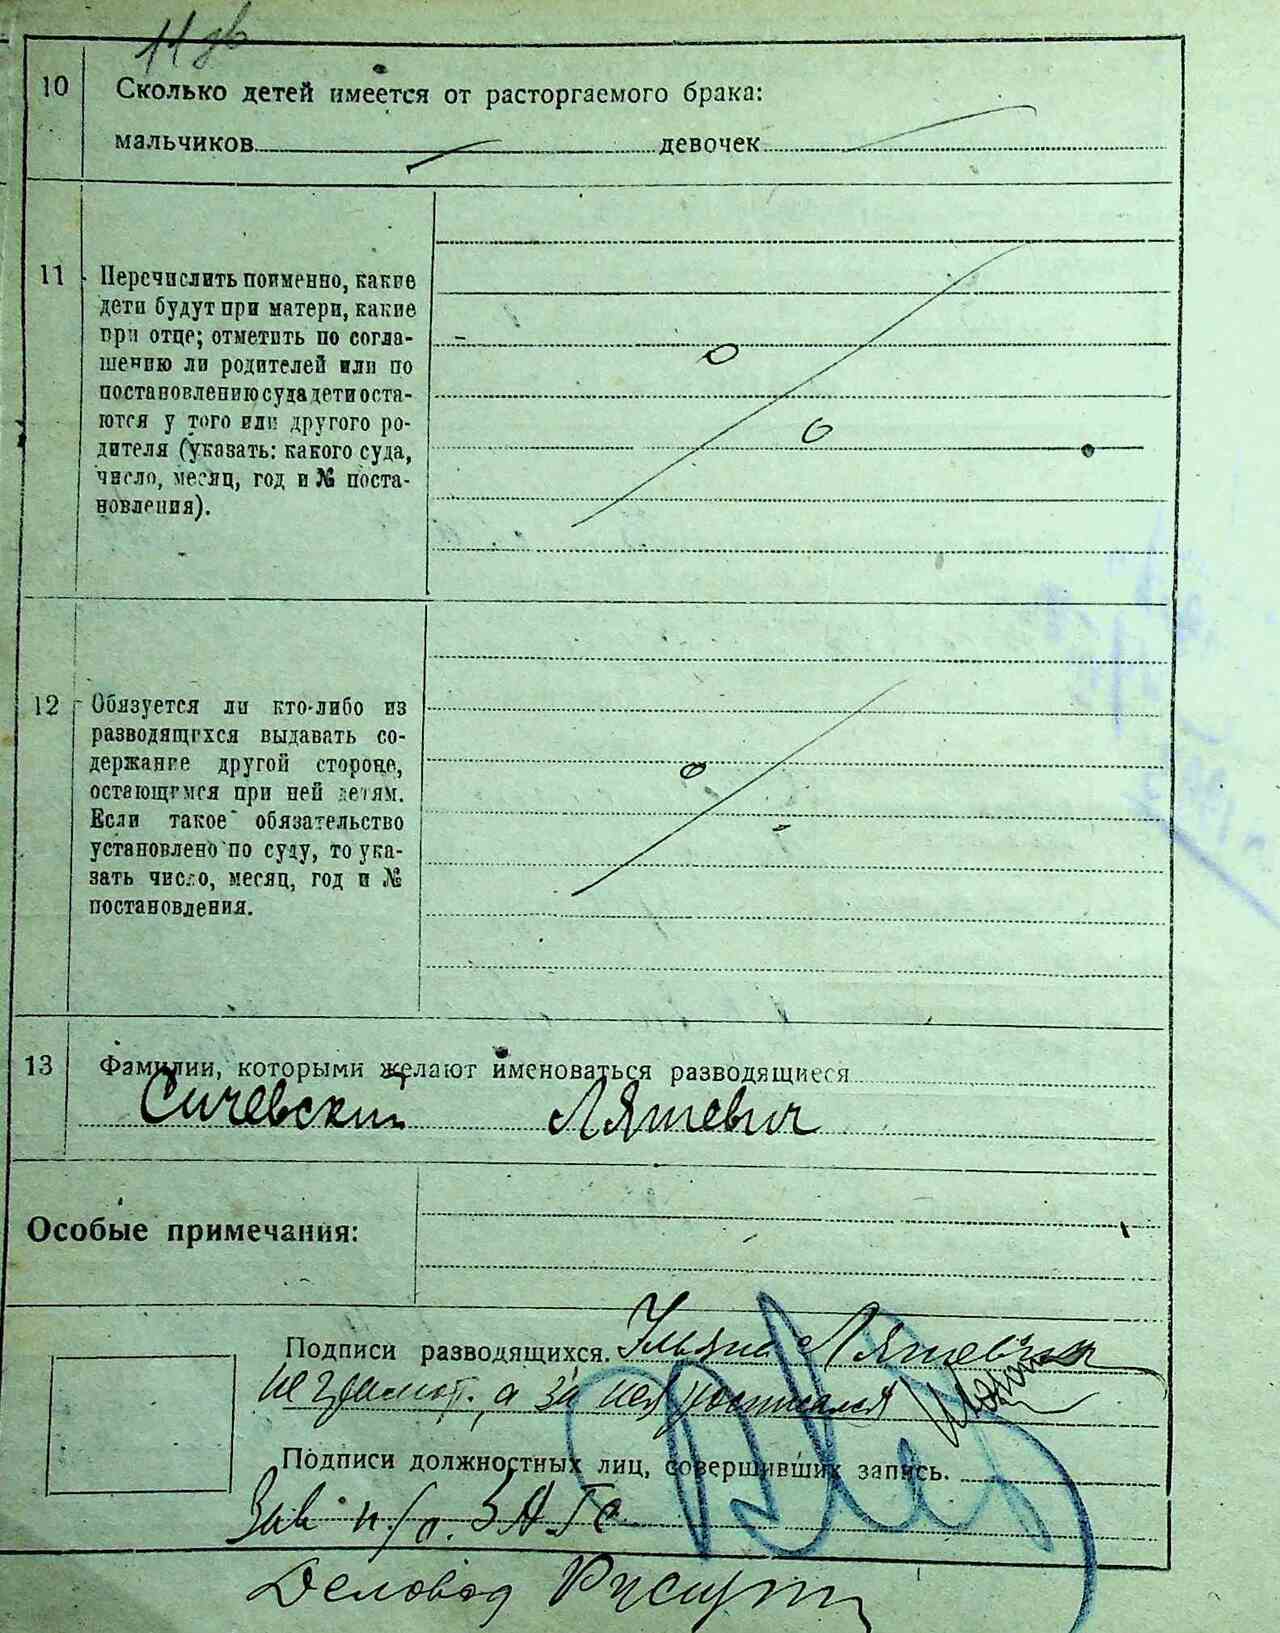 10 Сколько детей имеется от расторгаемого брака:
мальчиков девочек
11 Перечислить поименно, какие
дети будут при матери, какие
при отце; отметить по согла-
шению ли родителей или по
постановлению суда дети оста-
ются у того или другого ро-
дителя (указать: какого суда,
число, месяц, год и № поста-
новления).
12 Обязуется ли кто-либо из
разводящихся выдавать со-
держание другой стороне,
остающимся при ней детям.
Если такое обязательство
установлено по суду, то ука-
зать число, месяц, год и №
постановления.
13 Фамилии, которыми желают именоваться разводящиеся
Сичевский Ляшевич
Особые примечания:
Подписи разводящихся. Ульяна Ляшевич
неграмот. а за нея росписался
Подписи должностных лиц, совершивших запись.
Зав п/о. ЗАГС
Деловод